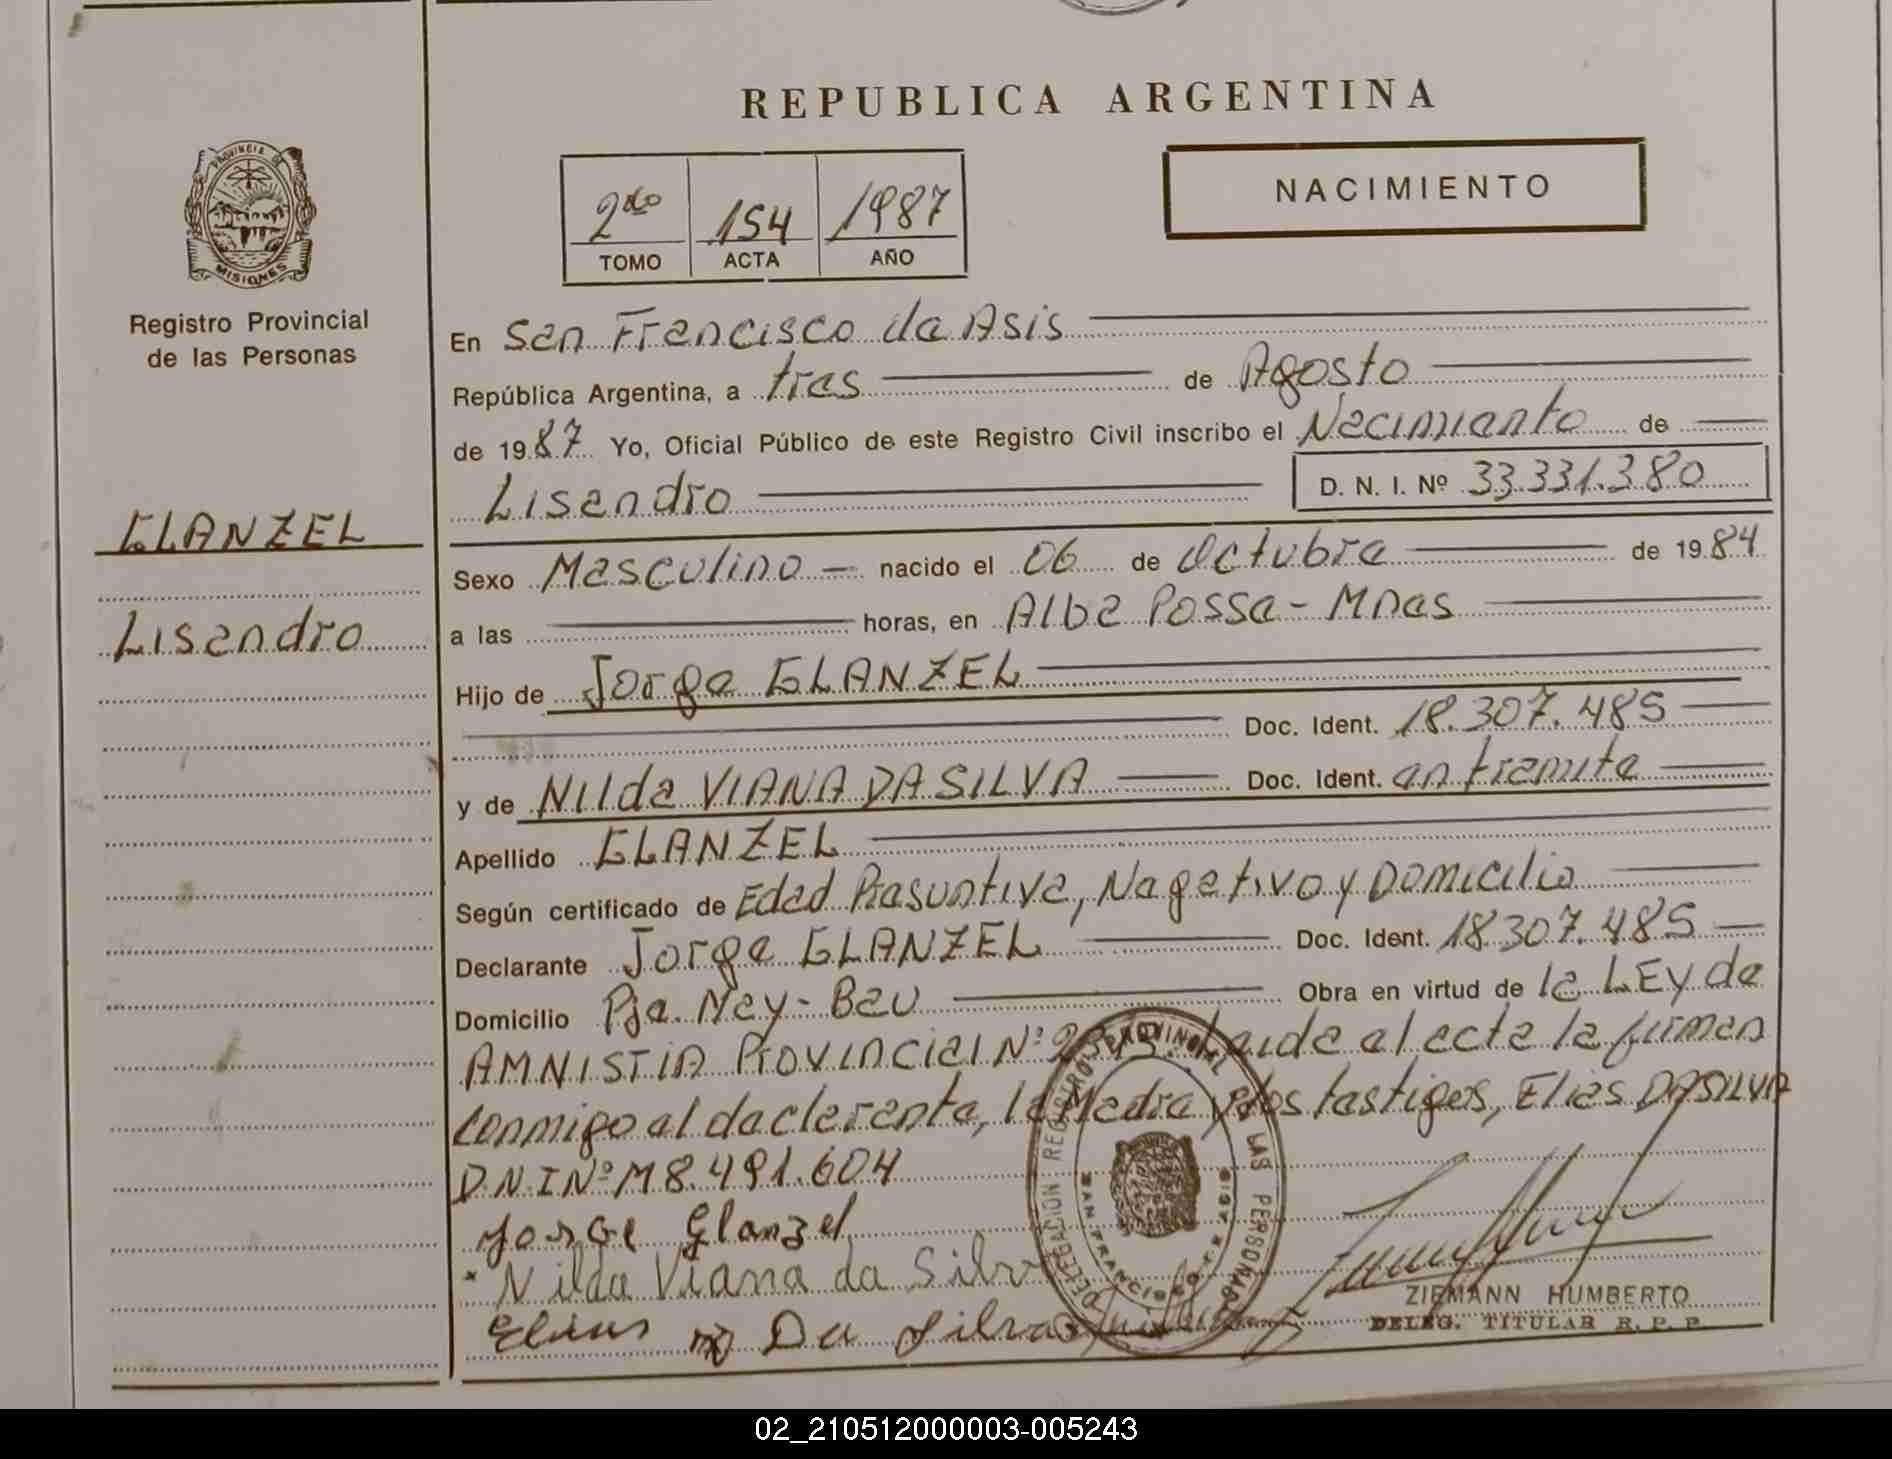 REPUBLICA ARGENTINA
PROVINCIA DE
MISIONES
Registro Provincial
de las Personas
GLANZEL
Lisandro
2do 154 1987
TOMO ACTA AÑO
NACIMIENTO
En San Francisco de Asis
República Argentina, a tres de Agosto
de 1987 Yo, Oficial Público de este Registro Civil inscribo el Nacimiento de
Lisandro D. N. I. Nº 33.331.380
Sexo Masculino nacido el 06 de Octubre de 1984
a las horas, en Alba Posse - Mnes
Hijo de Jorge GLANZEL
Doc. Ident. 18.307.485
y de Nilda VIANA DA SILVA Doc. Ident. en tramite
Apellido GLANZEL
Según certificado de Edad Presuntiva, Negativo y Domicilio
Declarante Jorge GLANZEL Doc. Ident. 18.307.485
Domicilio Pje. Ney-Bau Obra en virtud de la LEY de
AMNISTIA Provincial Nº Leida el acta la firman
conmigo el declarante, la Madre y los testigos, Elias DA SILVA
D.N.I Nº M8.491.604
Jorge Glanzel
Nilda Viana da Silva
Elias Da Silva
DELEGACION REGISTRO PROVINCIAL DE LAS PERSONAS
SAN FRANCISCO DE ASIS
ZIEMANN HUMBERTO
DELEG. TITULAR R. P. P.
02_210512000003-005243